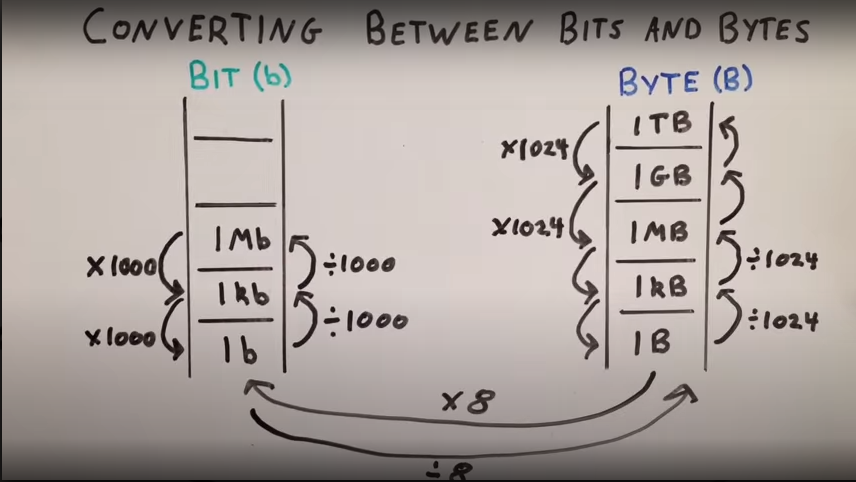 CONVERTING BETWEEN BITS AND BYTES
BIT (b)
BYTE (B)
1 Mb
1 kb
1 b
×1000
×1000
÷1000
÷1000
1 TB
1 GB
1 MB
1 kB
1 B
×1024
×1024
÷1024
÷1024
×8
÷8